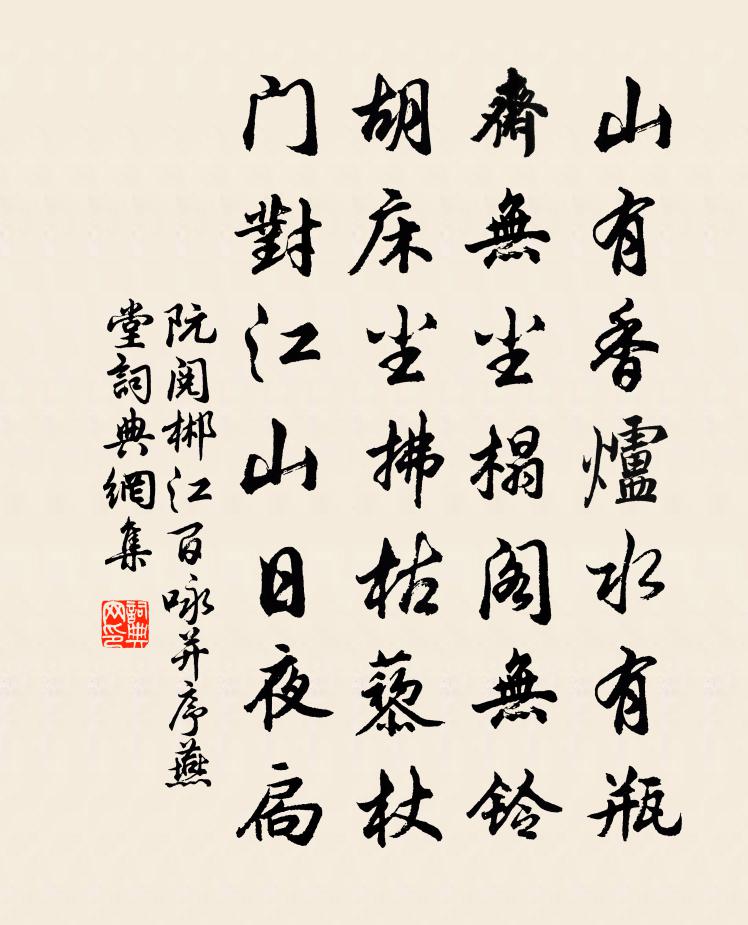 山有香爐水有瓶
齋無尘榻阁無鈴
胡床尘拂枯藜杖
门對江山日夜扃
阮阅郴江百咏并序燕
堂詞典網集
詞典
网印